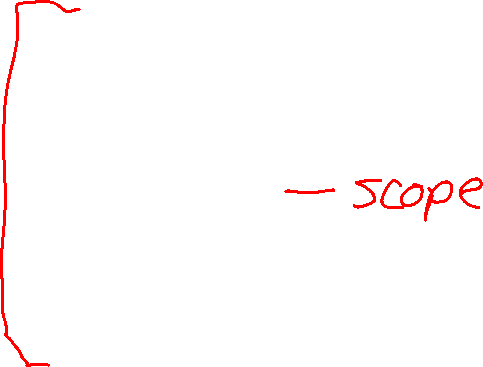 — scope